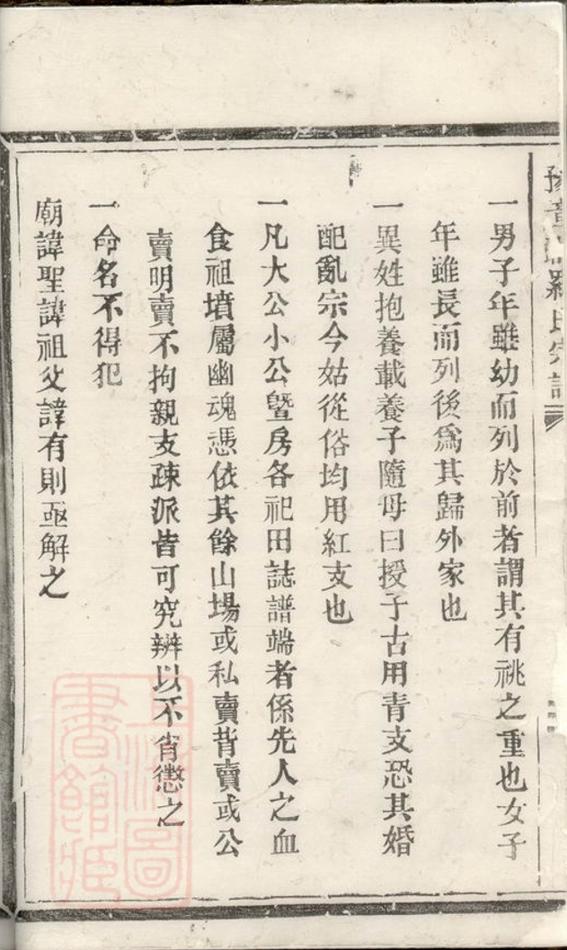 豫章羅氏宗譜
一男子年雖幼而列於前者謂其有祧之重也女子
年雖長而列後爲其歸外家也
一異姓抱養載養子隨母曰授子古用青支恐其婚
配亂宗今姑從俗均用紅支也
一凡大公小公曁房各祀田誌譜端者係先人之血
食祖墳屬幽魂憑依其餘山塲或私賣背賣或公
賣明賣不拘親支疎派皆可究辨以不肖懲之
一命名不得犯
廟諱聖諱祖父諱有則亟解之
上海圖
書館藏